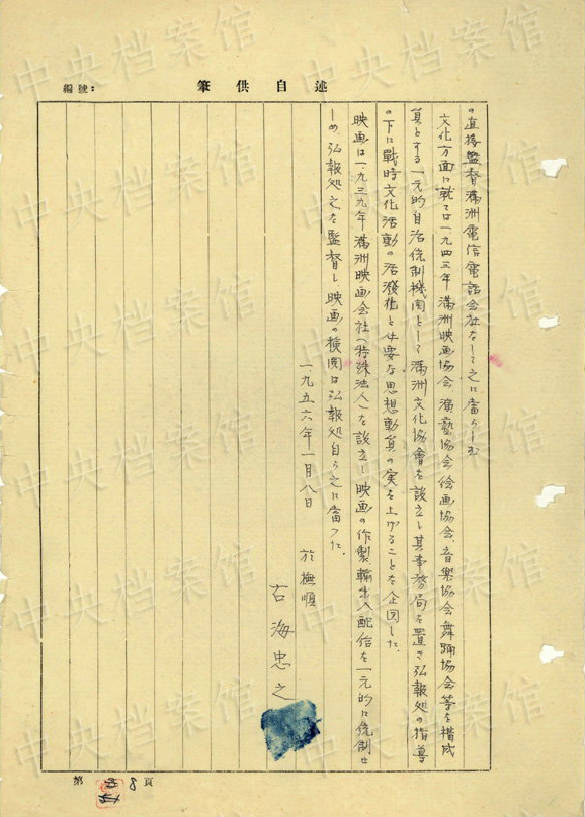 編號:
筆供自述
の直接監督満洲電信電話会社をして之に當らしむ
文化方面に就ては一九四三年満洲映画協会、演藝協会、絵画協会、音楽協会、舞踊協会等を構成
員とする一元的自治統制機関として満洲文化協會を設立し其事務局を置き弘報処の指導
の下に戦時文化活動の活溌化と必要な思想動員の実を上げることを企図した。
映画は一九三九年満洲映画会社(特殊法人)を設立し映画の作製、輸出入配信を一元的に統制せ
しめ、弘報処之を監督し、映画の検閲は弘報処自ら之に當つた。
一九五六年一月八日 於撫順
古海忠之
第 8 頁
中央档案馆